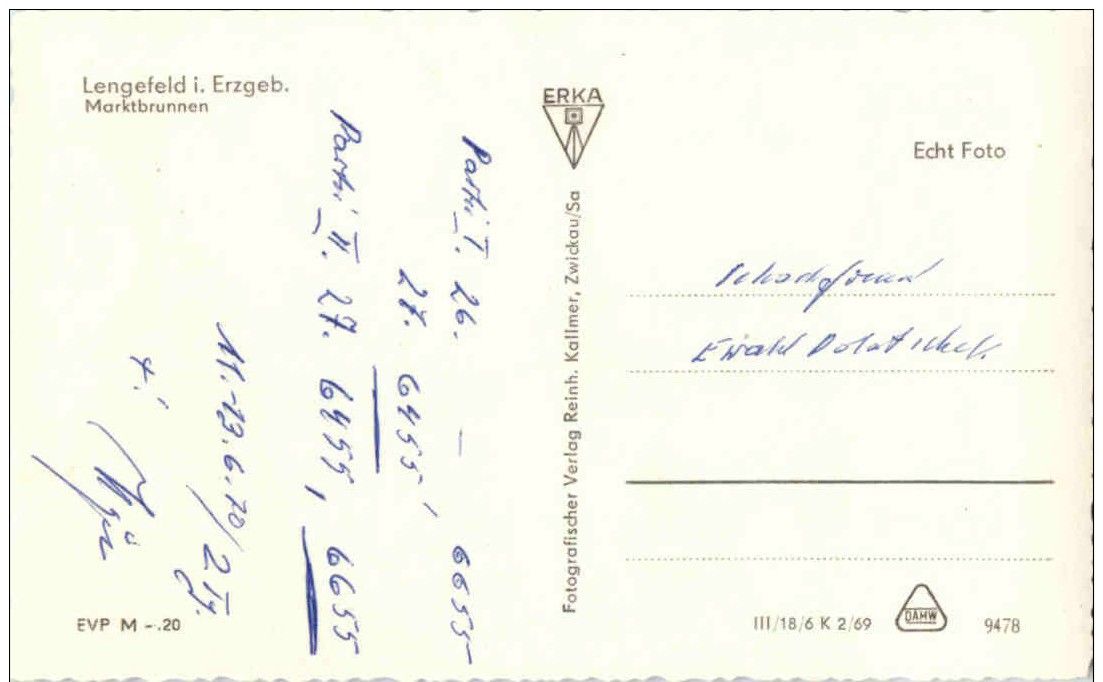 Lengefeld i. Erzgeb.
Marktbrunnen
Partie I. 26. — 6655
27. 6455,
Partie II. 27. 6455, 6655
11.-13.6.70/2 Tg.
ERKA
Fotografischer Verlag Reinh. Kallmer, Zwickau/Sa
Echt Foto
Schachfreund
Ewald Dolatschek.
EVP M -.20
III/18/6 K 2/69
DAMW
9478